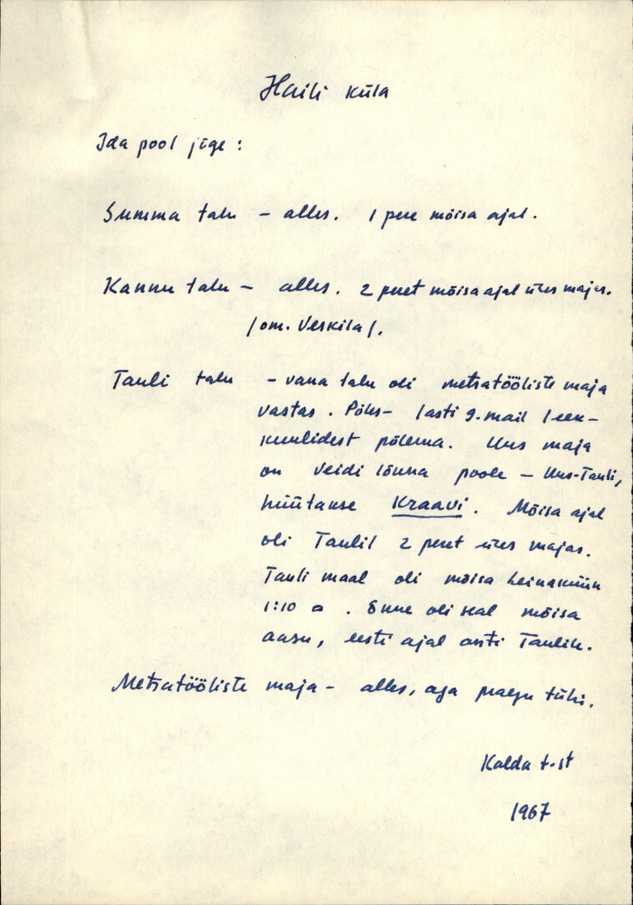 Haili küla
Ida pool jõge:
Summa talu – alles. 1 pere mõisa ajal.
Kannu talu – alles. 2 peret mõisa ajal ühes majas.
/om. Veskila/.
Tauli talu – vana talu oli metsatööliste maja
vastas. Põles – lasti 9. mail leek-
kuulidest põlema. Uus maja
on veidi lõuna poole – Uus-Tauli,
hüütakse Kraavi. Mõisa ajal
oli Taulil 2 peret ühes majas.
Tauli maal oli mõisa heinaküün
1:10 a. Enne oli seal mõisa
aasu, eesti ajal anti Taulile.
Metsatööliste maja – alles, aga praegu tühi.
Kalda t-st
1967